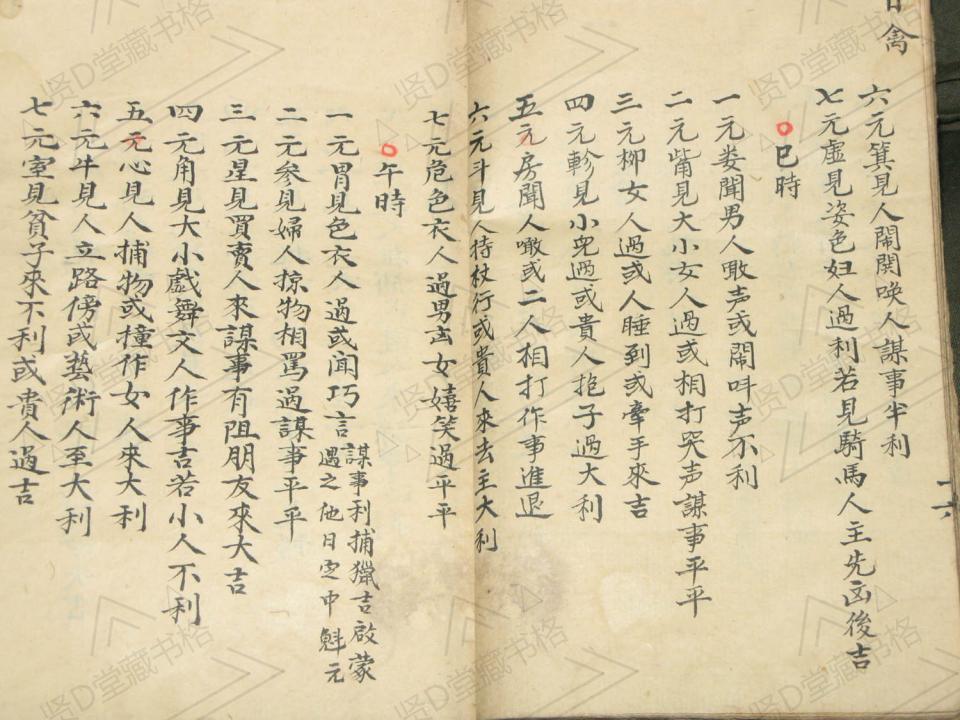 日禽
六元箕見人閙関唤人謀事半利
七元虚見姿色妇人過利若見騎馬人主先凶後吉
十六
巳時
一元娄聞男人噉声或閙呌声不利
二元觜見大小女人過或相打哭声謀事平平
三元柳女人過或人睡到或牽手來吉
四元軫見小児過或貴人抱子過大利
五元房聞人噉或二人相打作事進退
六元斗見人持杖行或貴人來去主大利
七元危色衣人過男凶女嬉笑過平平
午時
一元胃見色衣人過或闻巧言謀事利捕獵吉啟蒙
遇之他日定中魁元
二元参見婦人掠物相罵過謀事平平
三元星見買賣人來謀事有阻朋友來大吉
四元角見大小戲舞文人作事吉若小人不利
五元心見人捕物或撞作女人來大利
六元牛見人立路傍或藝術人至大利
七元室見貧子來不利或貴人過吉
贤D堂藏书格